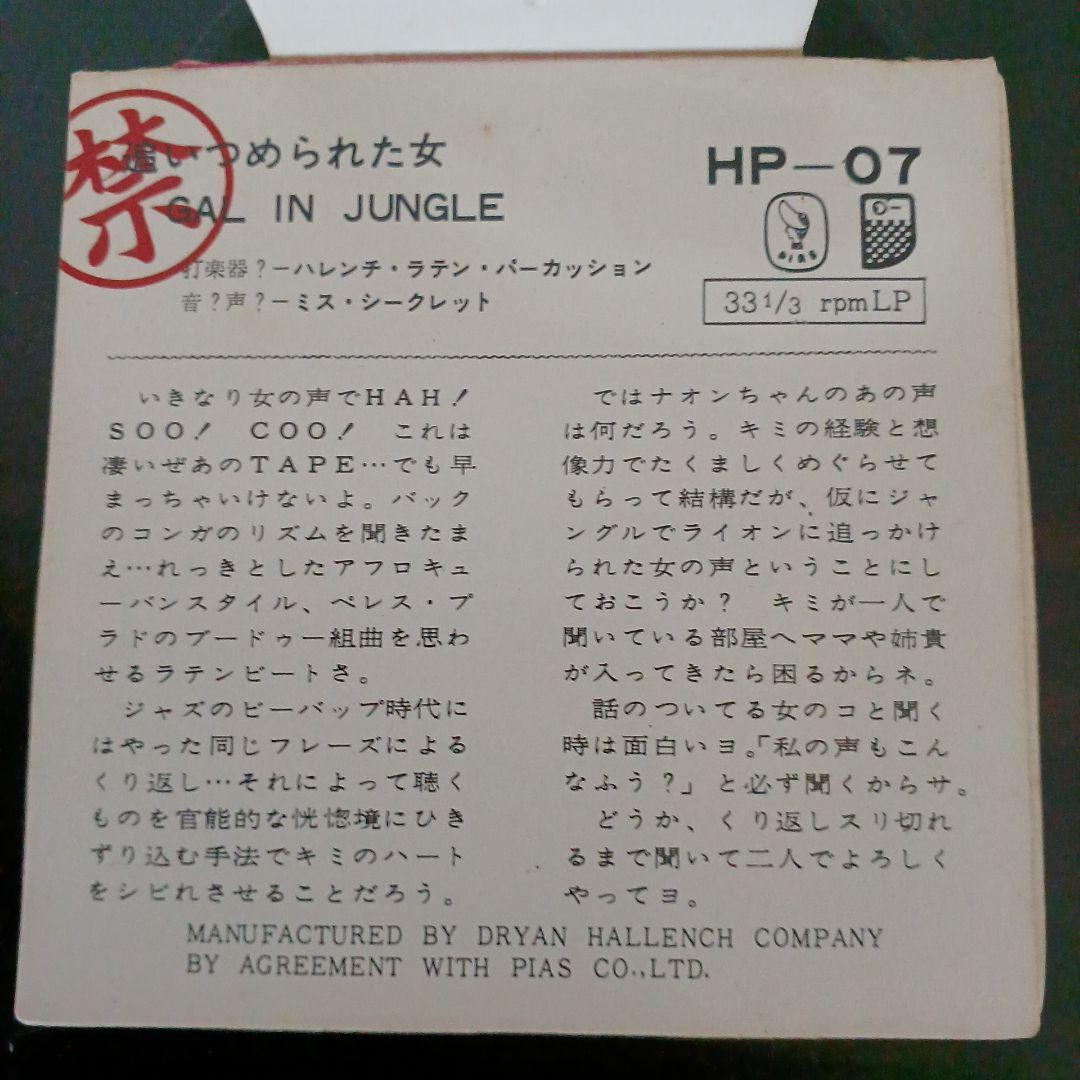 禁
追いつめられた女
GAL IN JUNGLE
打楽器?ーハレンチ・ラテン・パーカッション
音?声?ーミス・シークレット
HP-07
PIAS
33 1/3 rpm LP
いきなり女の声でHAH!
SOO! COO! これは
凄いぜあのTAPE…でも早
まっちゃいけないよ。バック
のコンガのリズムを聞きたま
え…れっきとしたアフロキュ
ーバンスタイル、ペレス・プ
ラドのブードゥー組曲を思わ
せるラテンビートさ。
ジャズのビーバップ時代に
はやった同じフレーズによる
くり返し…それによって聴く
ものを官能的な恍惚境にひき
ずり込む手法でキミのハート
をシビれさせることだろう。
ではナオンちゃんのあの声
は何だろう。キミの経験と想
像力でたくましくめぐらせて
もらって結構だが、仮にジャ
ングルでライオンに追っかけ
られた女の声ということにし
ておこうか? キミが一人で
聞いている部屋へママや姉貴
が入ってきたら困るからネ。
話のついてる女のコと聞く
時は面白いヨ。「私の声もこん
なふう?」と必ず聞くからサ。
どうか、くり返しスリ切れ
るまで聞いて二人でよろしく
やってヨ。
MANUFACTURED BY DRYAN HALLENCH COMPANY
BY AGREEMENT WITH PIAS CO.,LTD.